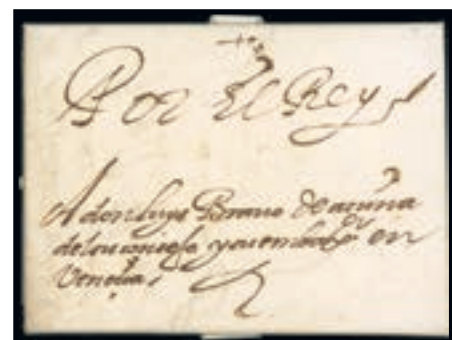 Por El Rey
A don luys Bravo de acuña
del su consejo y su embaxor en
Venecia